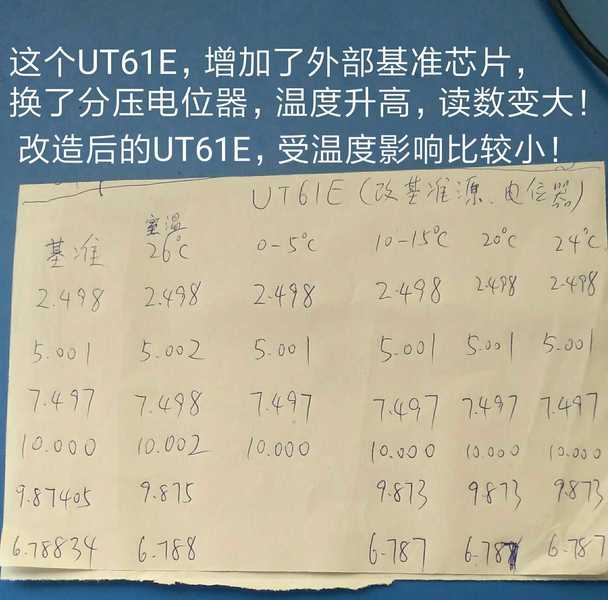 这个UT61E，增加了外部基准芯片，
换了分压电位器，温度升高，读数变大！
改造后的UT61E，受温度影响比较小！
UT61E（改基准源、电位器）
室温
基准 26°C 0-5°C 10-15°C 20°C 24°C
2.498 2.498 2.498 2.498 2.498 2.498
5.001 5.002 5.001 5.001 5.001 5.001
7.497 7.498 7.497 7.497 7.497 7.497
10.000 10.002 10.000 10.000 10.000 10.000
9.87405 9.875 9.873 9.873 9.873
6.78834 6.788 6.787 6.787 6.787